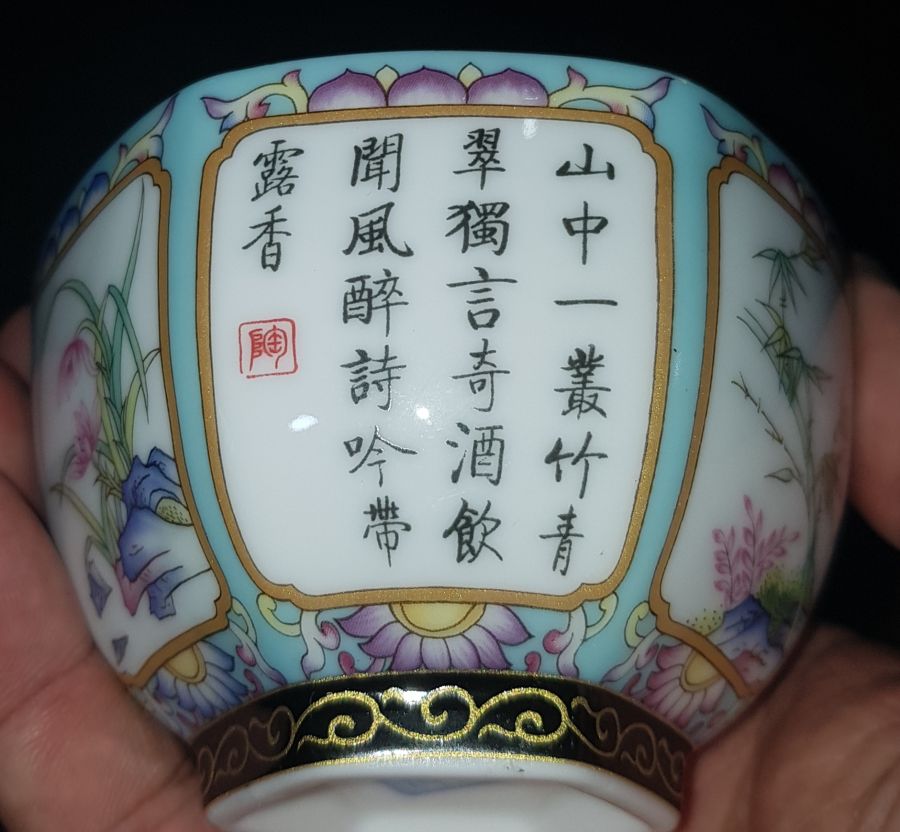 山中一叢竹青
翠獨言奇酒飲
聞風醉詩吟帶
露香
陶